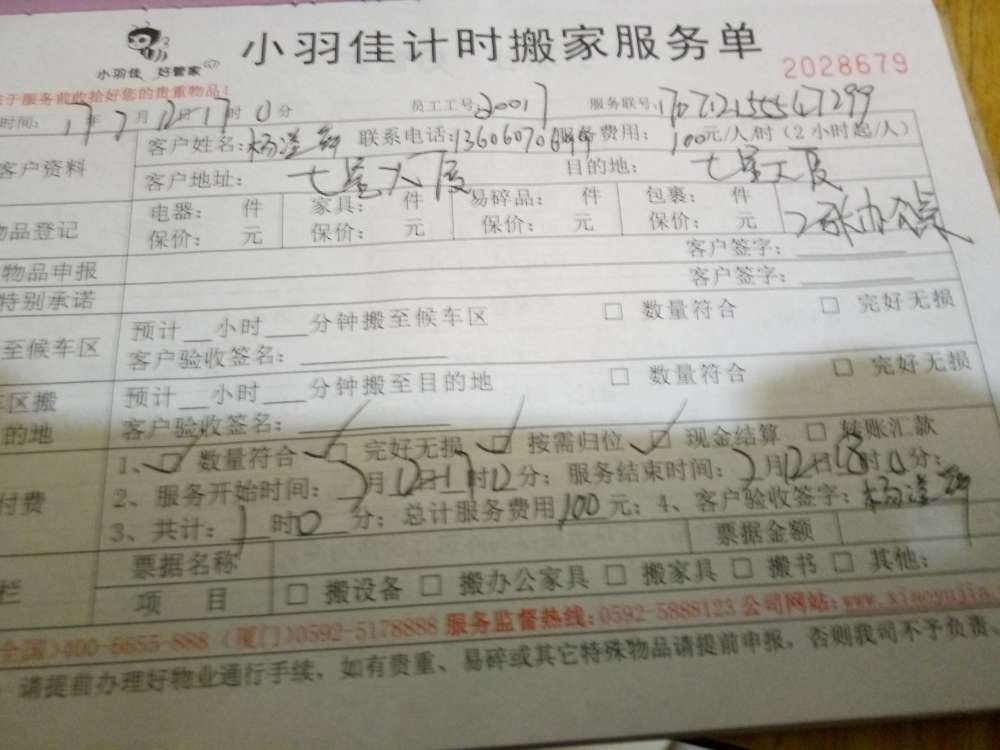 小羽佳 好管家
小羽佳计时搬家服务单
2028679
于服务前收拾好您的贵重物品!
时间: 17年7月12日17时0分 员工工号: 30017 服务联号:
客户资料 客户姓名: 杨 联系电话: 费用: 100元/人/时 (2小时起/人)
客户地址: 七星大厦 目的地: 七星大厦
物品登记 电器: 件 家具: 件 易碎品: 件 包裹: 件
保价: 元 保价: 元 保价: 元 保价: 元 2张办公桌
物品申报 客户签字:
特别承诺 客户签字:
至候车区 预计__小时___分钟搬至候车区 □ 数量符合 □ 完好无损
客户验收签名:
车区搬 预计__小时___分钟搬至目的地 □ 数量符合 □ 完好无损
的地 客户验收签名:
1、☑ 数量符合 ☑ 完好无损 ☑ 按需归位 ☑ 现金结算 □ 转账汇款
付费 2、服务开始时间: 7月12日17时12分; 服务结束时间: 7月12日18时0分;
3、共计: 1时0分; 总计服务费用100元; 4、客户验收签字: 杨
栏 票据名称 票据金额
项 目 □ 搬设备 □ 搬办公家具 □ 搬家具 □ 搬书 □ 其他:
全国)400-6655-888 (厦门)0592-5178888 服务监督热线:0592-5888123 公司网站:www.xiaoyujia.
请提前办理好物业通行手续, 如有贵重、易碎或其它特殊物品请提前申报, 否则我司不予负责、